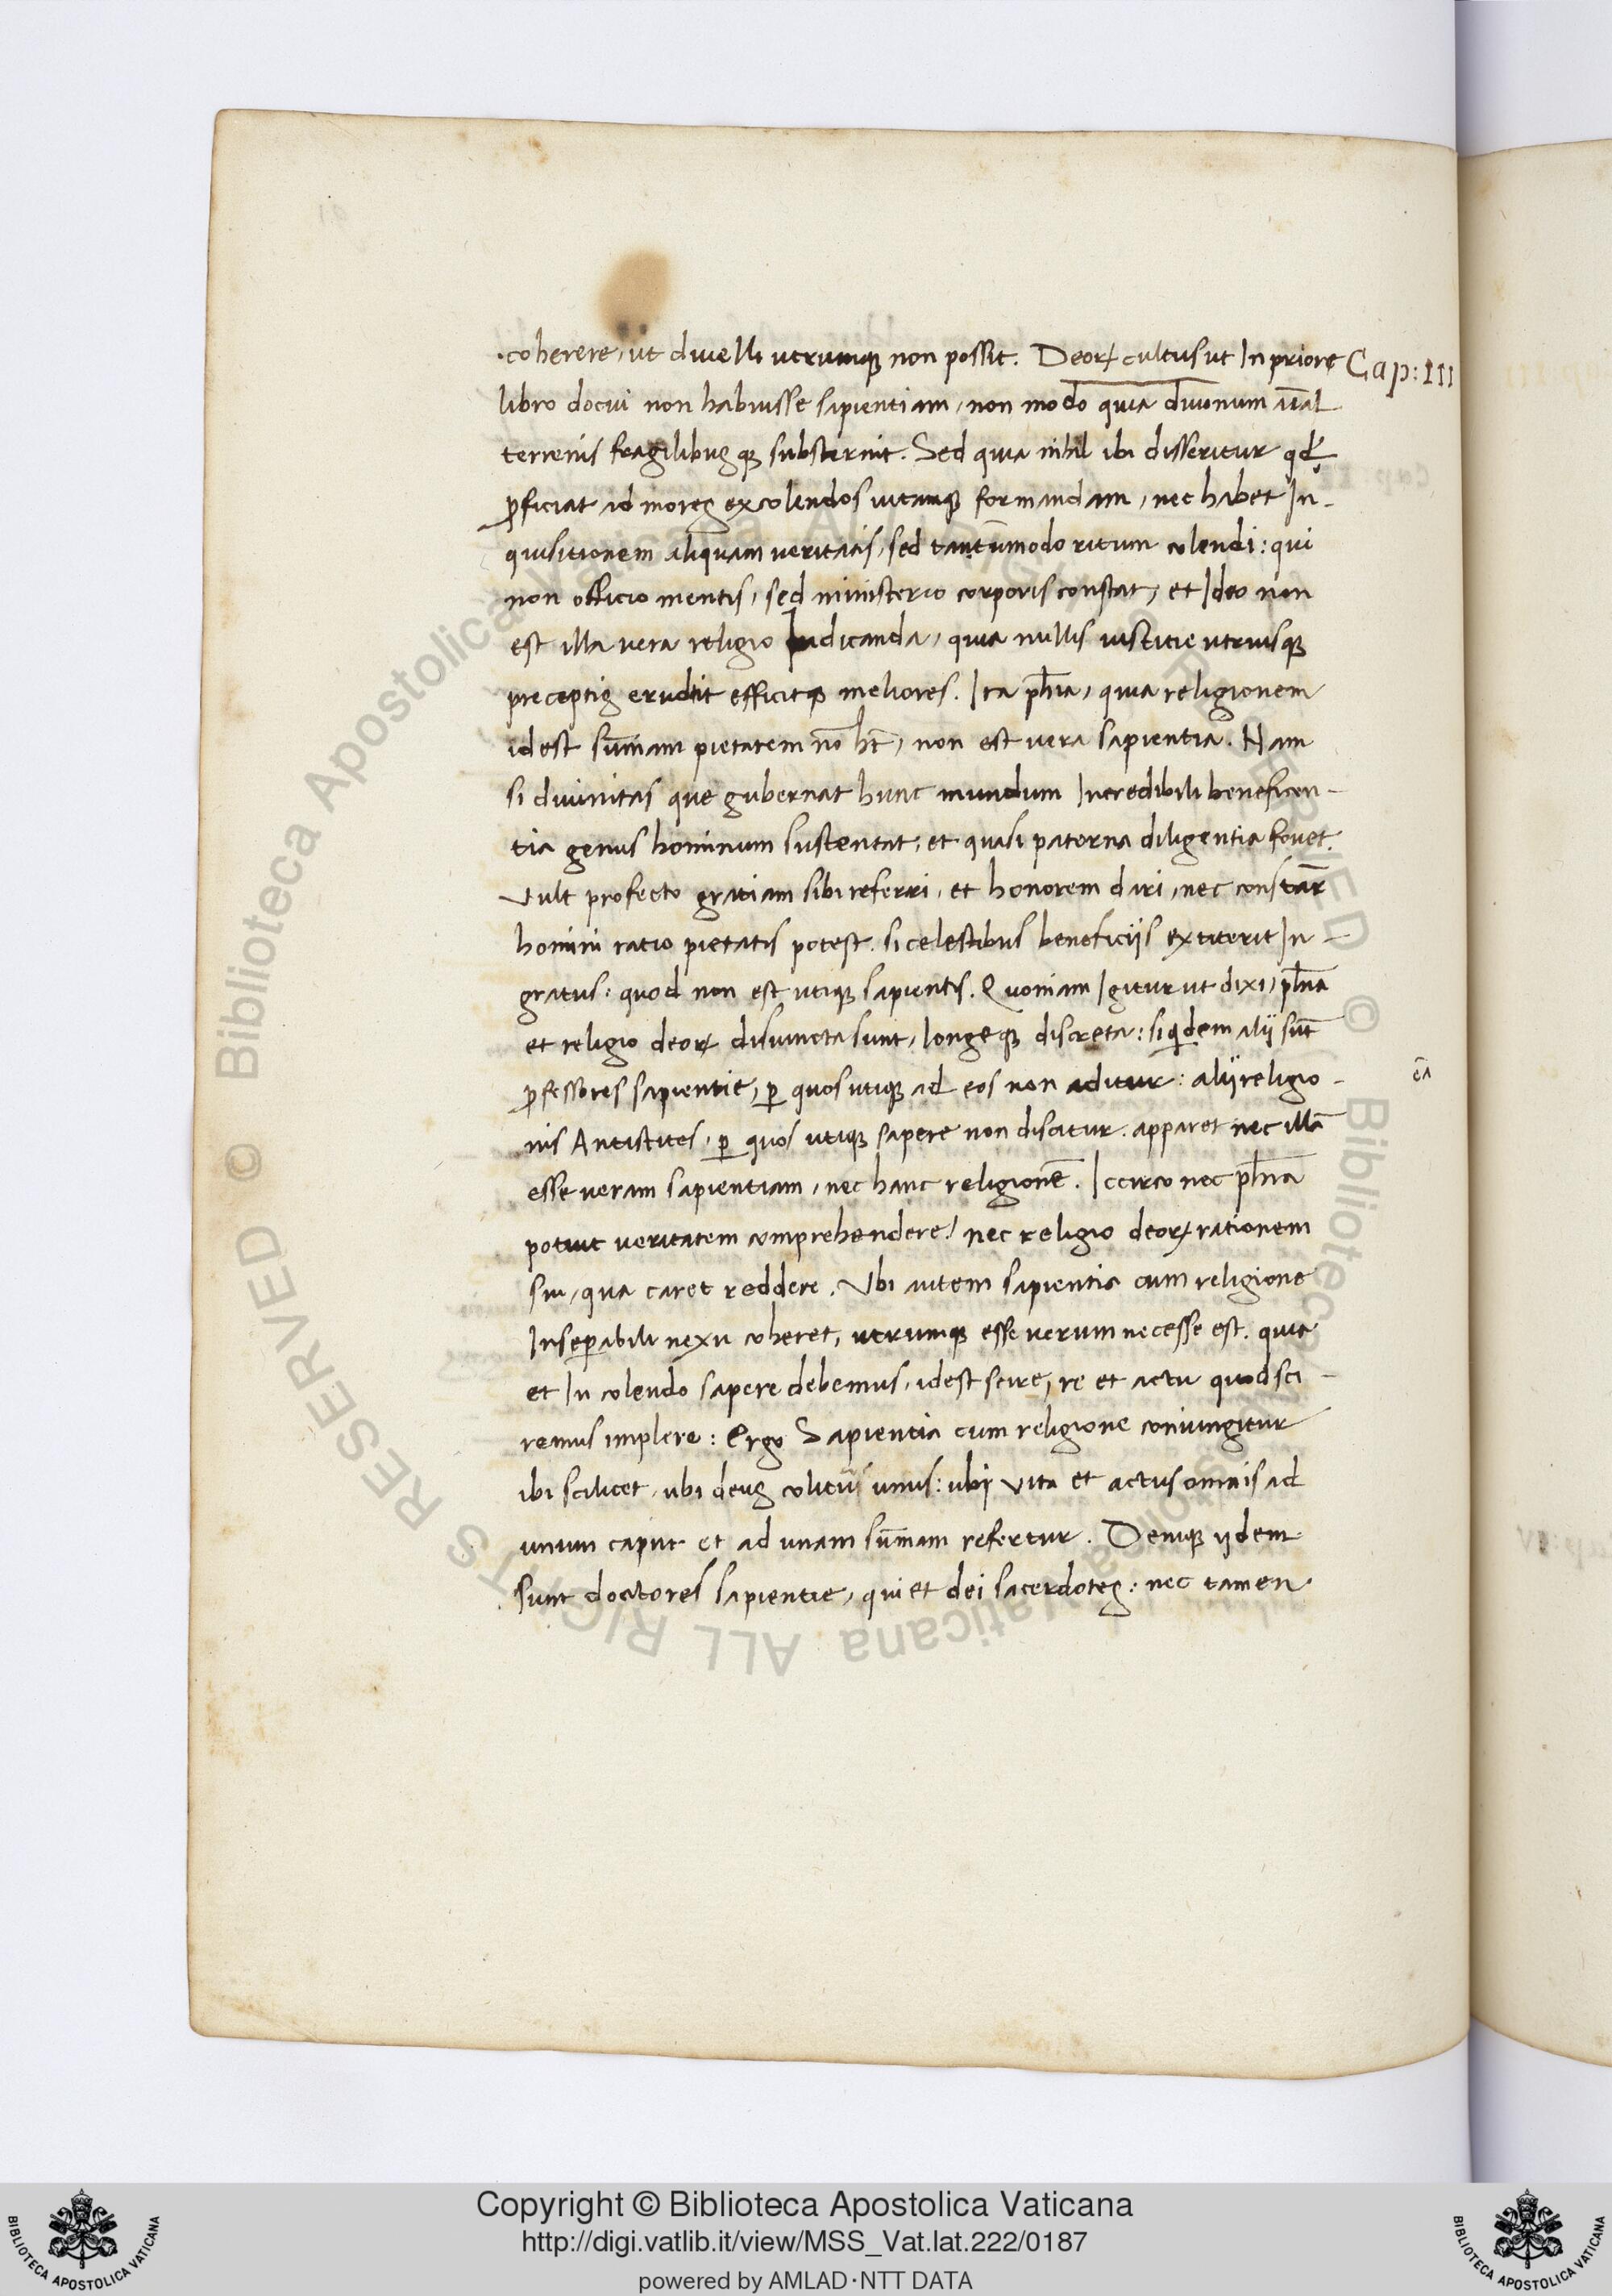 coherere, ut diuelli utrumqꝫ non possit. Deoꝝ cultus ut In priore Cap: III
libro docui non habuisse sapientiam, non modo quia diuinum aīal
terrenis fragilibusqꝫ substernit. Sed quia nihil ibi disseritur qđ
ꝓficiat ad mores excolendos uitamqꝫ formandam, nec habet In-
quisitionem aliquam ueritatis, sed tantūmodo ritum colendi: qui
non officio mentis, sed ministerio corporis constat, et Ideo non
est illa uera religio Iudicanda, quia nullis iusticie utriusqꝫ
preceptis erudit efficitqꝫ meliores. Ita ph̄ia, quia religionem
idest sūmam pietatem nō h̄t, non est uera sapientia. Nam
si diuinitas que gubernat hunc mundum Incredibili beneficen-
tia genus hominum sustentat, et quasi paterna diligentia fouet.
Vult profecto gratiam sibi referri, et honorem dari, nec constār
homini ratio pietatis potest. si celestibus beneficiis extiterit In-
gratus: quod non est utiqꝫ sapientis. Quoniam Igitur ut dixi, ph̄ia
et religio deoꝝ disiuncta sunt, longeqꝫ discreta: siqͥdem alii sūt
ꝓfessores sapientie, ꝑ quos utiqꝫ ad eos non aditur: alii religio-
ēā
nis Antistites, ꝑ quos utiqꝫ sapere non discitur. apparet nec illā
esse ueram sapientiam, nec hanc religionē. Iccirco nec ph̄ia
potuit ueritatem comprehendere, nec religio deoꝝ rationem
sui, qua caret reddere. Vbi autem sapientia cum religione
Inseꝑabili nexu coheret, utrumqꝫ esse uerum necesse est. quia
et In colendo sapere debemus, idest scire, re et actu quod sci-
remus implere: Ergo Sapientia cum religione coniungitur
ibi scilicet, ubi deus colitur unus: ubi vita et actus omnis ad
unum caput et ad unam sūmam refertur. Deniqꝫ iidem
sunt doctores sapientie, qui et dei sacerdotes: nec tamen
Copyright © Biblioteca Apostolica Vaticana
http://digi.vatlib.it/view/MSS_Vat.lat.222/0187
powered by AMLAD·NTT DATA